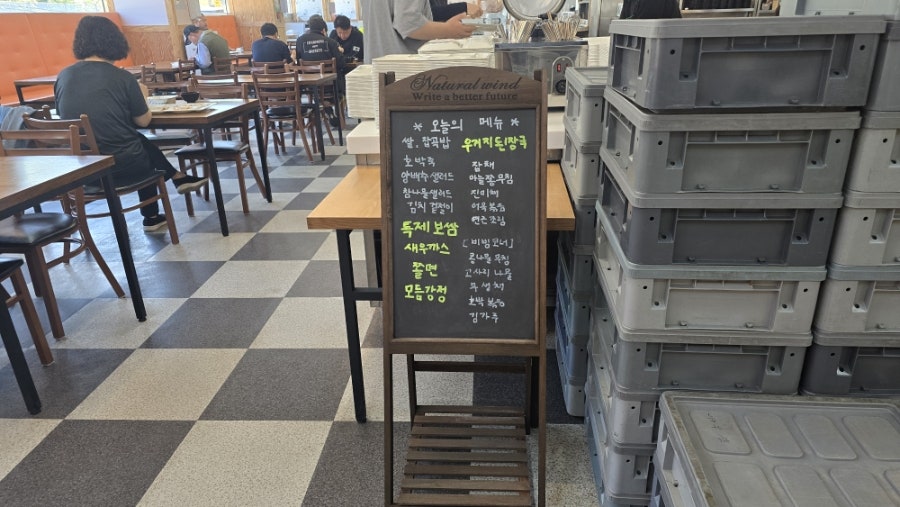 Natural wind
Write a better future
* 오늘의 메뉴 *
쌀.잡곡밥
호박죽
양배추샐러드
참나물샐러드
김치 겉절이
특제 보쌈
새우까스
쫄면
모듬강정
우거지된장국
잡채
마늘쫑무침
진미채
어묵볶음
연근조림
[비빔코너]
콩나물무침
고사리 나물
무생채
호박 볶음
김가루